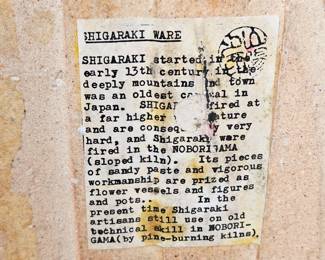 SHIGARAKI WARE
SHIGARAKI started in the
early 13th century in the
deeply mountains and town
was an oldest in
Japan. fired at
a far higher
and are very
hard, and Shigaraki ware
fired in the NOBORIGAMA
(sloped kiln). Its pieces
of sandy paste and vigorous
workmanship are prized as
flower vessels and figures
and pots.. In the
present time Shigaraki
artisans still use on old
technical skill in NOBORI-
GAMA(by pine-burning kilns)